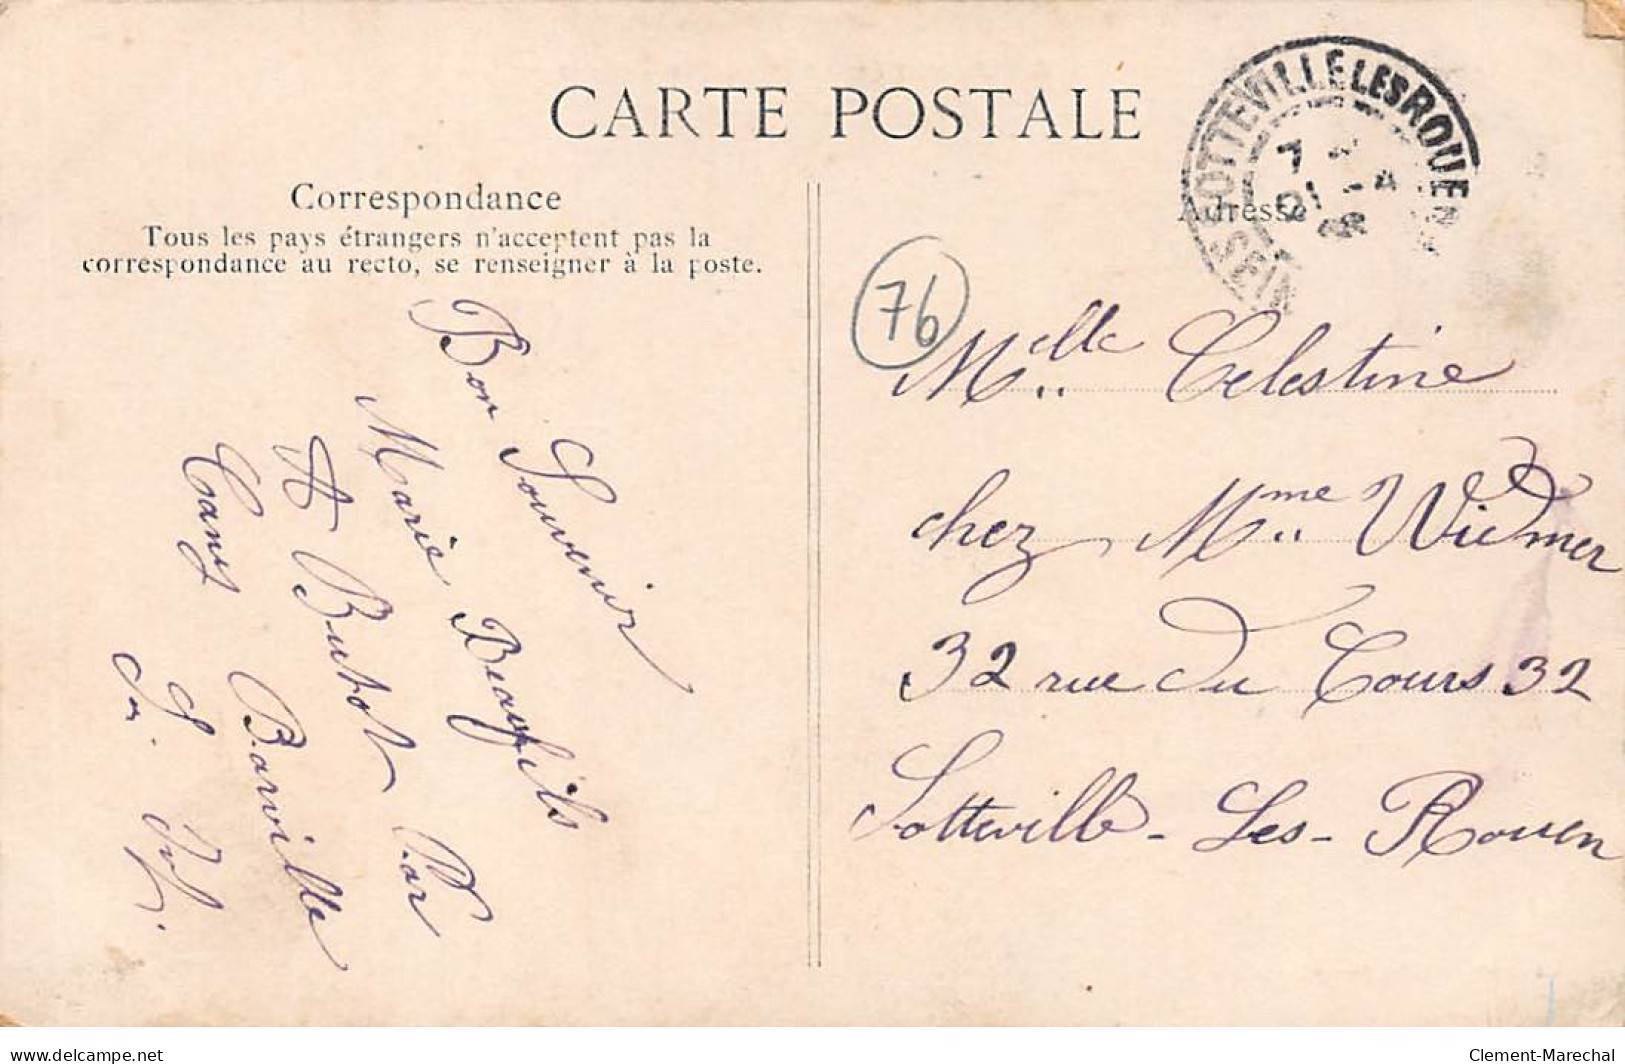 CARTE POSTALE
Correspondance
Tous les pays étrangers n'acceptent pas la
correspondance au recto, se renseigner à la poste.
Bon Souvenir
Marie Beaufils
A Butot Par
Cany Barville
S. Inf.
SOTTEVILLE LES ROUEN
7
Adresse
76
Melle Celestine
chez Mme Widmer
32 rue du Cours 32
Sotteville-Les-Rouen
delcampe.net
Clement-Marechal